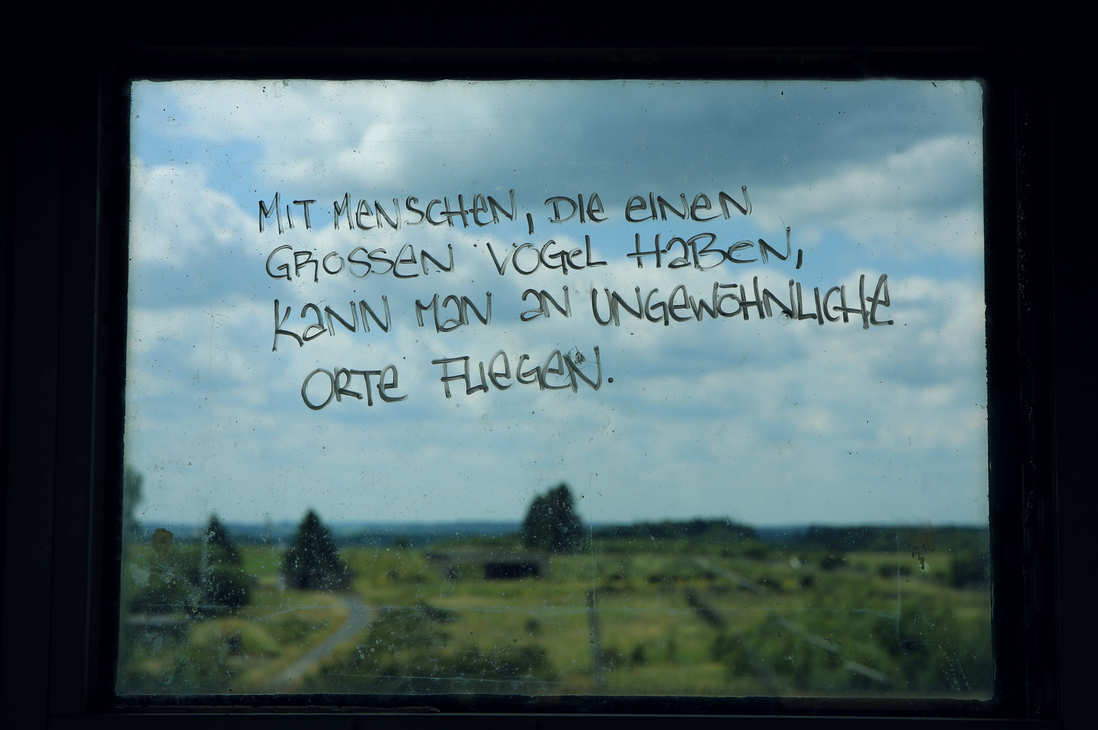 MIT MENSCHEN, DIE EINEN
GROSSEN VOGEL HABEN,
KANN MAN AN UNGEWÖHNLICHE
ORTE FLIEGEN.